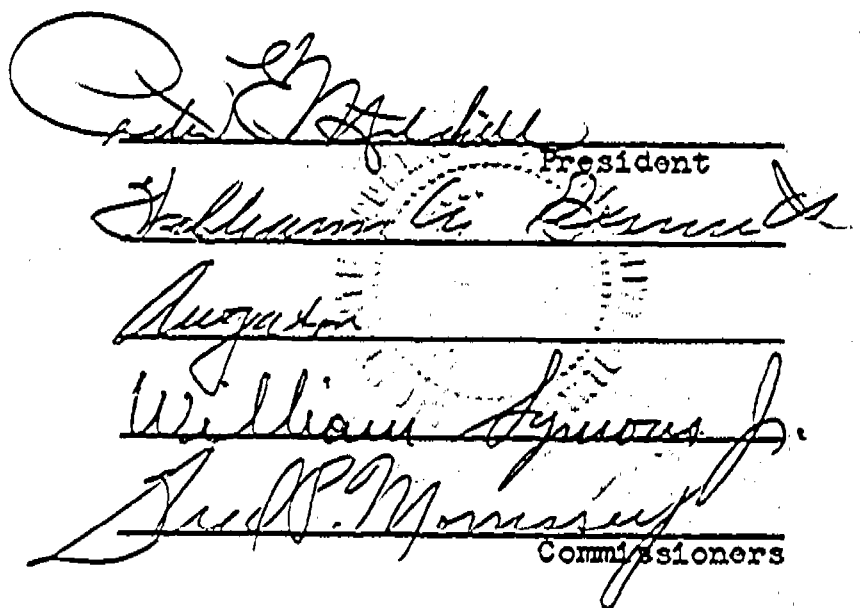 Peter E. Mitchell
President
William A. Bennett
Gatov
William Symons Jr.
Fred P. Morrissey
Commissioners